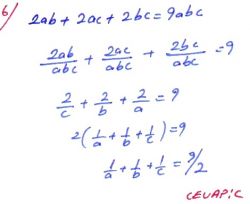 6/ 2ab + 2ac + 2bc = 9abc
2ab/abc + 2ac/abc + 2bc/abc = 9
2/c + 2/b + 2/a = 9
2(1/a + 1/b + 1/c) = 9
1/a + 1/b + 1/c = 9/2
CEVAP: C